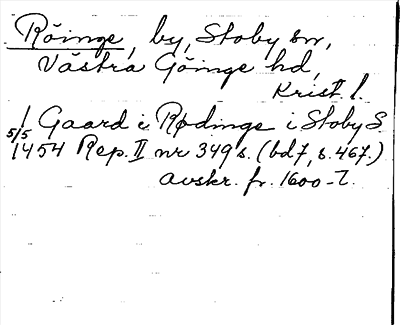 Röinge, by, Stoby sn,
Västra Göinge hd,
Krist. l.
1 Gaard i Rødinge i Stoby S.
5/5 1454 Rep. II nr 349 s. (bd 7, s. 467.)
Avskr. fr. 1600-t.